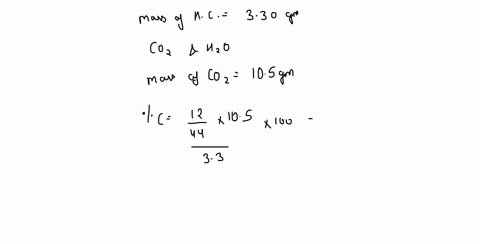 mass of H.C. = 3.30 gm
CO₂ & H₂O
mass of CO₂ = 10.5 gm
% C = 12/44 × 10.5 / 3.3 × 100 =